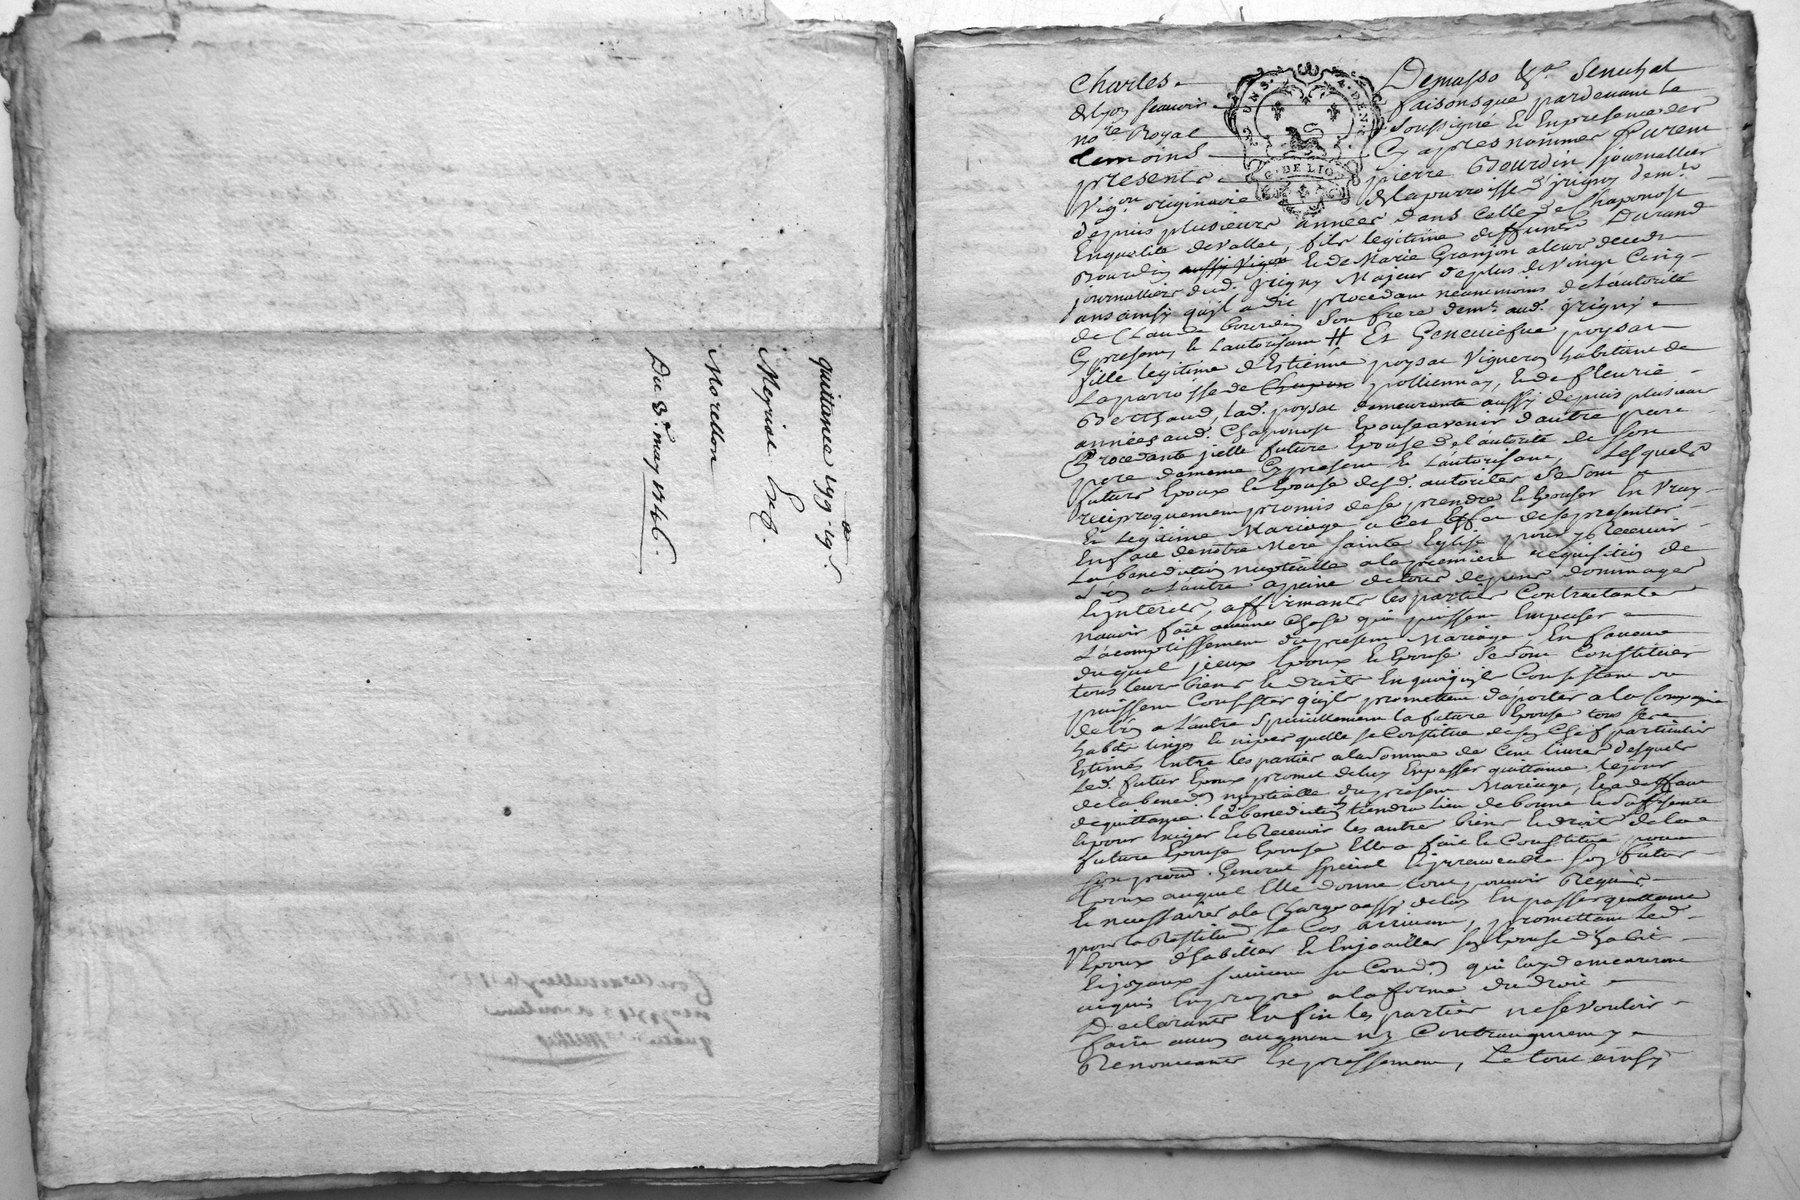 quittance 199.ᵗᵗ 19.ˢ
Meyriat
Morellon
Du 3.ᵉ may 1746.
Charles Demasso &ᵃ Senechal
de Lyon scavoir faisons que pardevant le
noʳᵉ Royal soussigné et en presence des
temoins cy apres nommés furent
presents pierre Bourdin journallier
vigᵒⁿ originaire de la parroisse d'jrigny demᵗ
depuis plusieurs années dans celle de Chaponost
En qualité de vallet, fils legitime de deffunts Durand
Bourdin aussy vigᵒⁿ et de Marie Granjon a leurs deceds
journalliers dud. jrigny Majeur de plus de vingt Cinq
ans ainsy qu'jl a dit procedant neanmoins de l'autorité
de Claude bourdin son frere demᵗ aud. jrigny
Cy present et l'autorisant # Et Geneviefve poysat
fille legitime d'Estienne poysat vigneron habitant de
La parroisse de Chapon polliennay, et de fleurie
Berthaud, lad. poysat demeurante aussy depuis plusieurs
années aud. Chaponost Epouse avenir d'autre part
Procedante jcelle future Epouse de l'autorité de son
pere de meme Cy present et l'autorisant, Lesquels
futurs Epoux et Epouse desd. autorités se sont
reciproquement promis de se prendre et Epouser En vray
Et Legitime Mariage a Cet Effet de se presenter
En face de notre Mere sainte Eglise pour y Recevoir
La benediction nuptialle a la premiere requisition de
L'un a L'autre a peine de tous depens dommages
Et jnterets, affirmants les parties Contractantes
n'avoir fait aucune Chose qui puissent Empecher
L'acomplissement du present Mariage, En faveur
duquel jceux Epoux et Epouse se sont Constitués
tous leurs biens et droits En quoy qu'jls Consistent ou
puissent Consister qu'jls promettent d'aporter a la Compagnie
de l'un a L'autre specialement la future Epouse tous ses
habits linges et nipes quelle se Constitue de son Chef particulier
Estimés Entre les parties a la somme de Cent livres desquels
Led. futur Epoux promet de luy En passer quittance le jour
de la bened.ⁿ nuptialle du present Mariage, Et a deffaut
de quittance la benediction tiendra lieu de bonne et suffisante
Et pour Exiger et Recevoir les autres biens et droits de la
future Epouse Epouse Elle a fait et Constitué pour
son procur. General special Et jrrevocable son futur
Epoux auquel Elle donne tout pouvoir Requis
Et necessaires a la Charge aussy de luy En passer quittance
pour la Restitu.ⁿ Le Cas arrivant, promettant Led.
Epoux d'habiller Et Enjoailler son Epouse d'habits
Et joyaux suivant sa Condᵒⁿ qui luy demeureront
acquis En propre a la forme du droit
Declarants En fin les parties ne se vouloir
faire aucun augment ny Contraugment y
Renonceants Expressement, Le tout ainsy